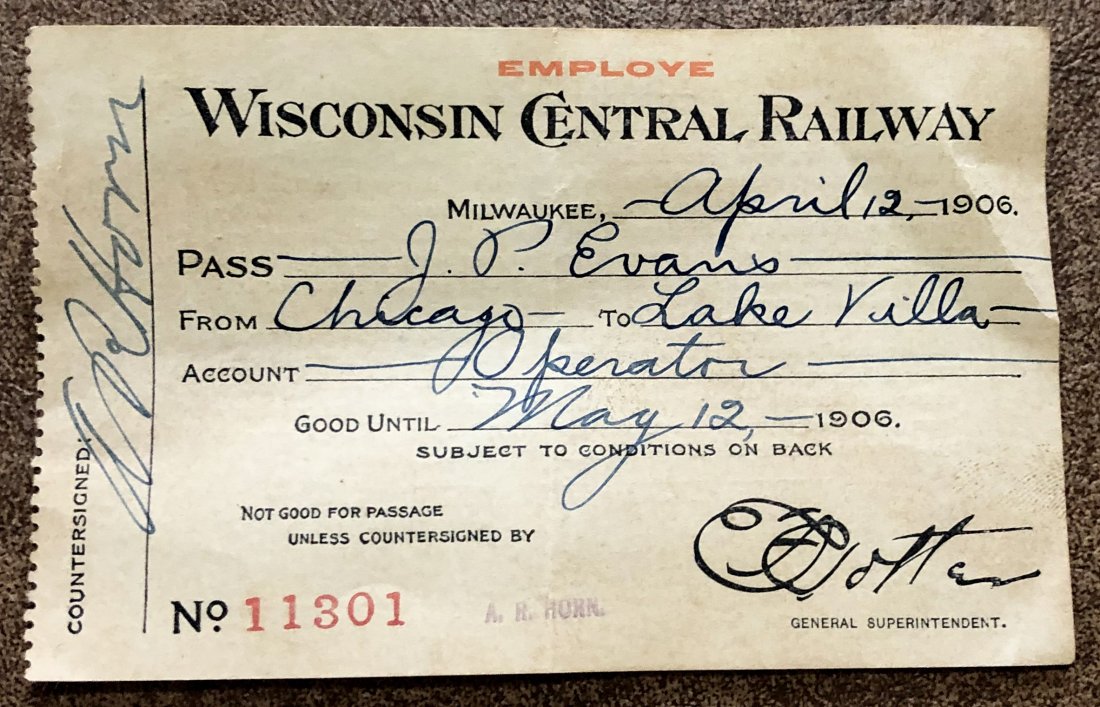 EMPLOYE
WISCONSIN CENTRAL RAILWAY
MILWAUKEE, April 12, 1906.
PASS J. P. Evans
FROM Chicago TO Lake Villa
ACCOUNT Operator
GOOD UNTIL May 12, 1906.
SUBJECT TO CONDITIONS ON BACK
NOT GOOD FOR PASSAGE
UNLESS COUNTERSIGNED BY
A. R. HORN.
No 11301
GENERAL SUPERINTENDENT.
COUNTERSIGNED: A R Horn